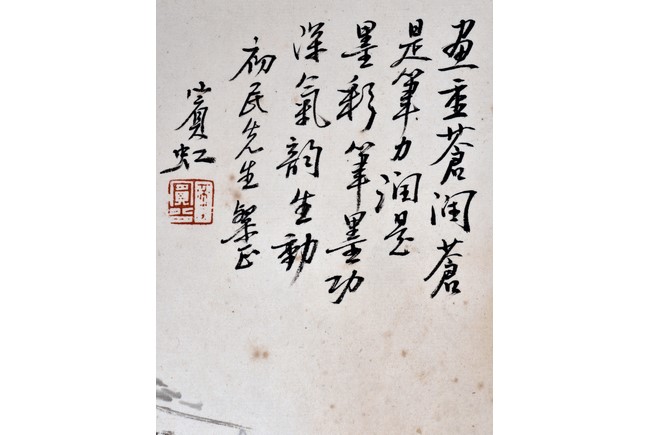 畫重蒼潤蒼
是筆力潤是
墨彩筆墨功
深氣韵生動
初民先生粲正
賓虹